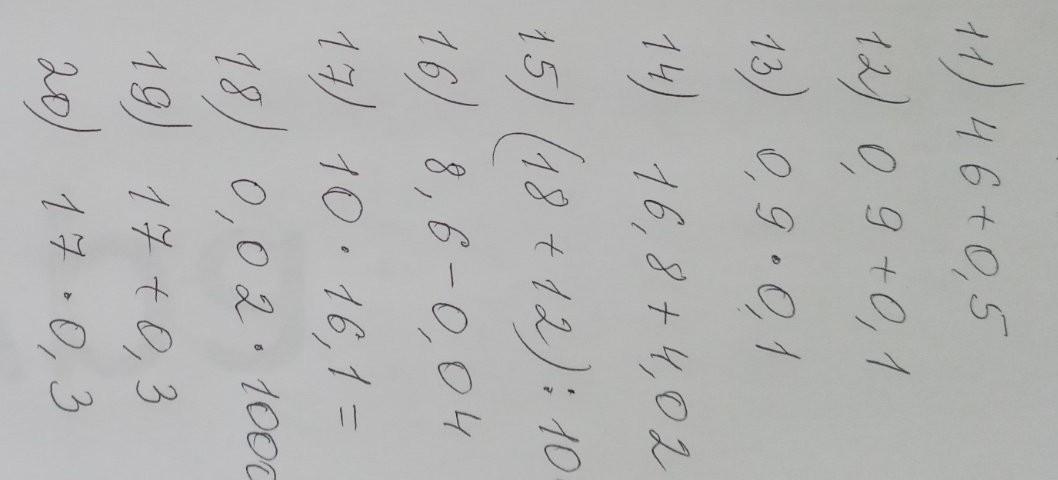 11) 46+0,5
12) 0,9+0,1
13) 0,9·0,1
14) 16,8+4,02
15) (18+12):10
16) 8,6-0,04
17) 10·16,1=
18) 0,02·1000
19) 17+0,3
20) 17·0,3